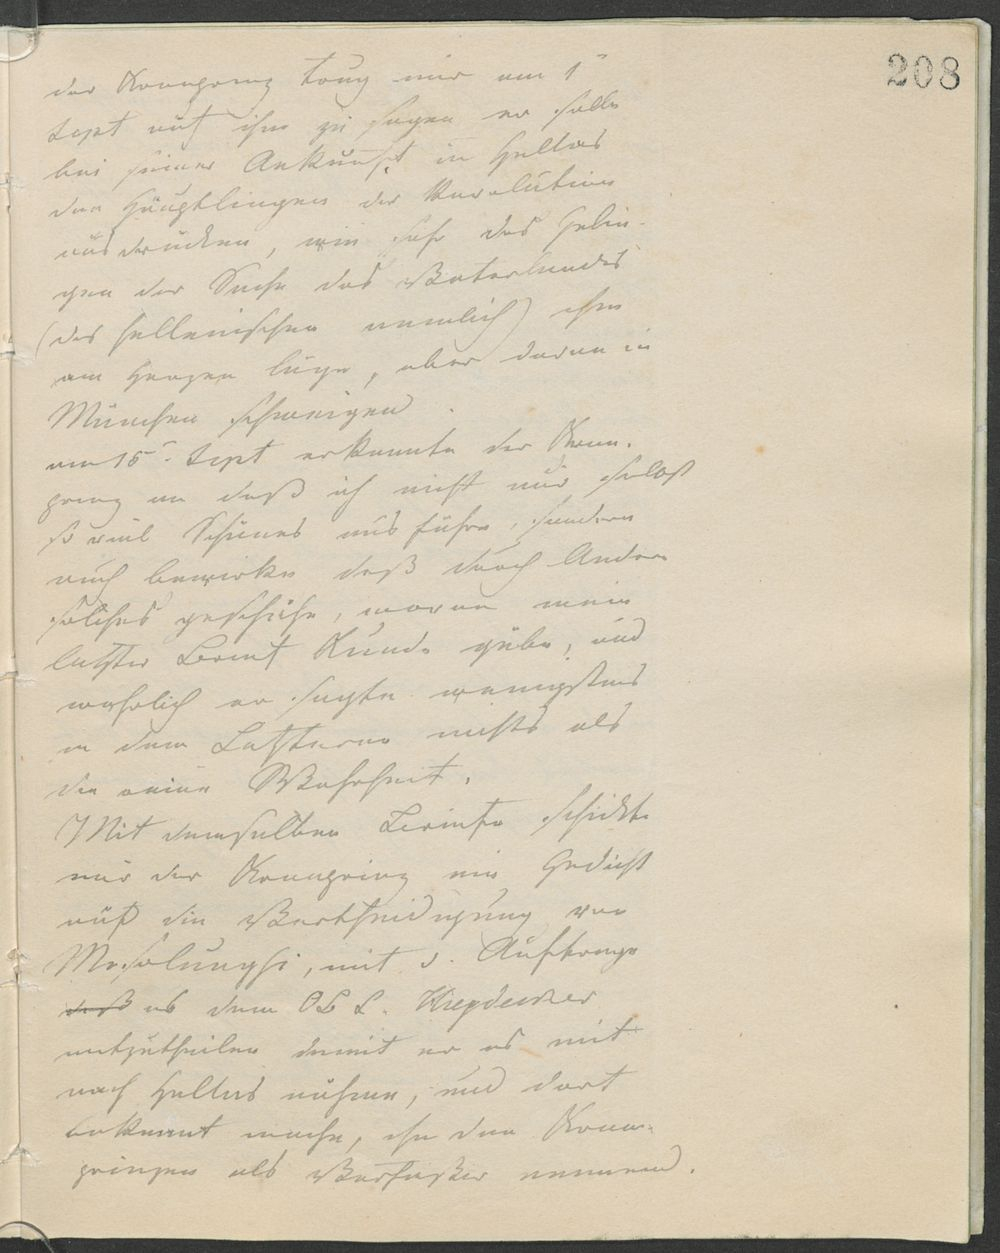 208
der Kronprinz trug mir am 1"
Sept auf ihm zu sagen er solle
bei seiner Ankunft in Hellas
den Häuptlingen der Revolution
ausdrücken, wie sehr das Gelin-
gen der Sache des Vaterlandes
(des hellenischen nemlich) ihm
am Herzen läge, aber davon in
München schweigen.
am 15" Sept erkannte der Kron-
prinz an daß ich nicht nur selbst
so viel Schönes ausführe, sondern
auch bewirke daß durch Andere
solches geschähe, wovon mein
letzter Brief Kunde gäbe, und
wahrlich er sagte wenigstens
in dem Letzteren nichts als
die reine Wahrheit.
Mit demselben Briefe schickte
mir der Kronprinz ein Gedicht
auf die Vertheidigung von
Mesolunghi, mit d. Auftrage
daß es dem Obl. Heydecker
mitzutheilen damit er es mit
nach Hellas nähme, und dort
bekannt mache, ihn den Kron-
prinzen als Verfaßer nennend.